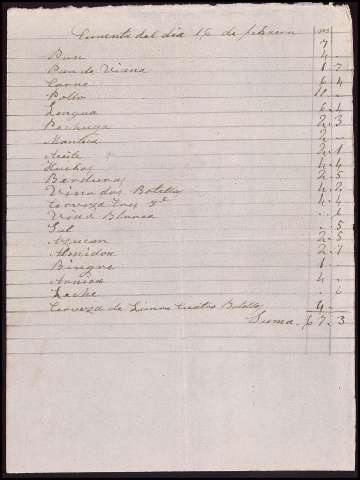 Cuenta del dia 16 de febrero
Pan 4
Pan de Viena 1 7
Carne 6 4
Pollo 10 -
Lengua 6 4
Pechuga 2 3
Manteca 2 -
Aceite 2 1
Huebos 4 4
Berduras 2 5
Vino dos Botellas 4 2
Cerveza Tres 4 4
Vino Blanco - 6
Sal - 5
Azucar 2 5
Almidon 2 1
Bingre 1 -
Leche - 6
Cerveza de Limon Cuatro Botellas 4 -
Suma 67 3